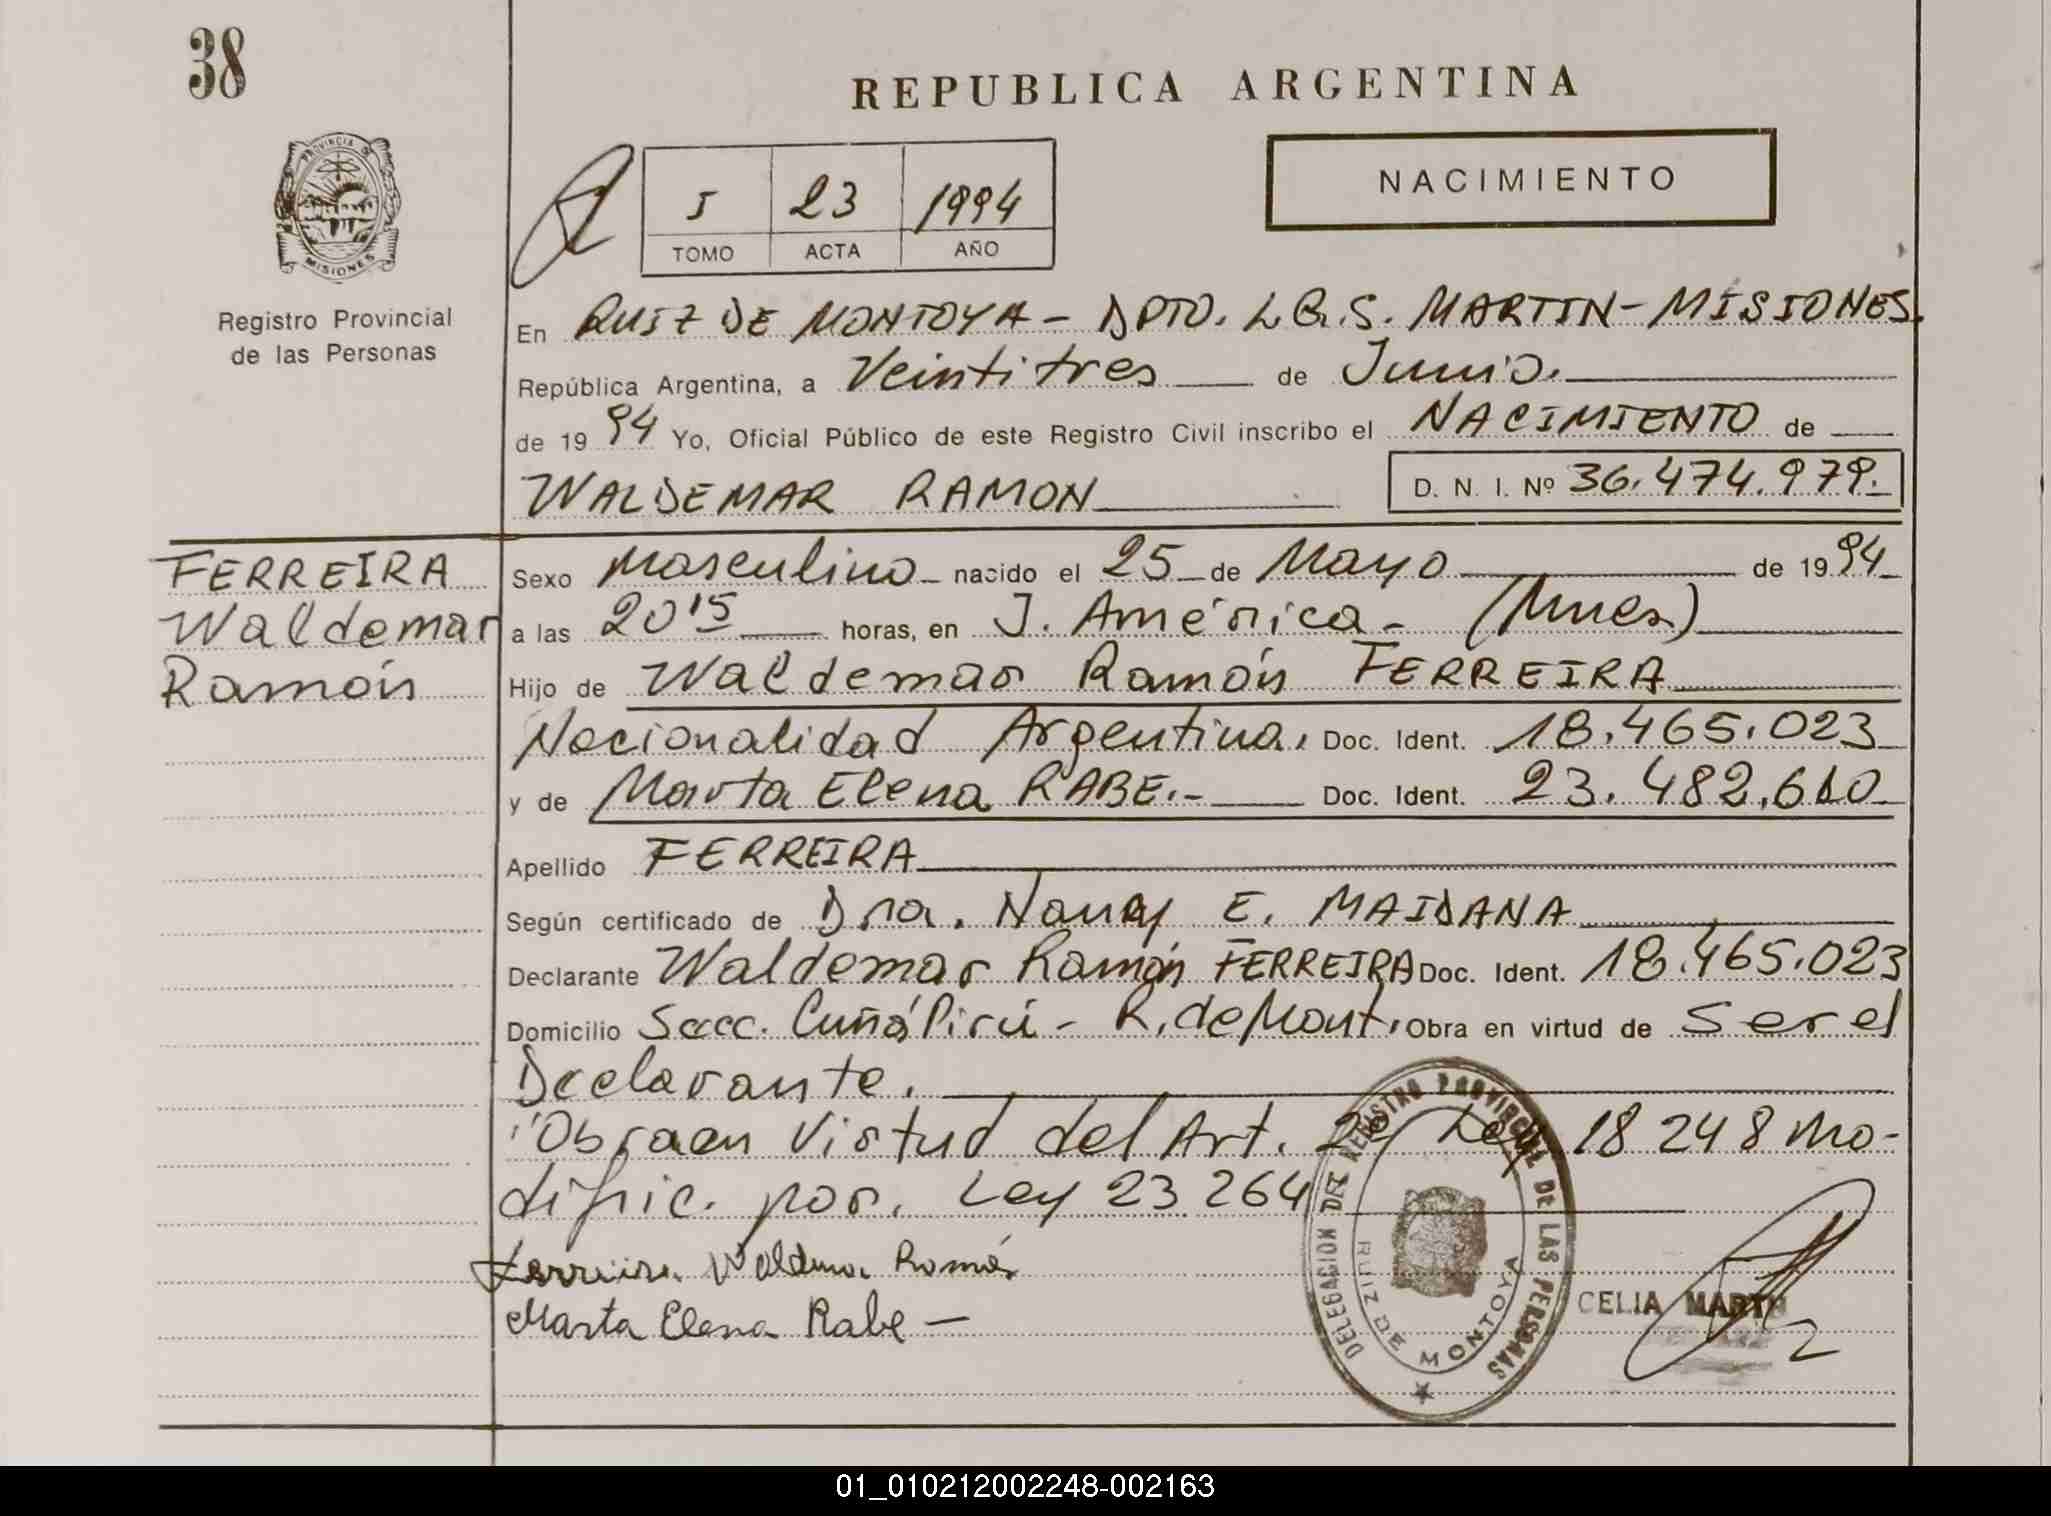 38
REPUBLICA ARGENTINA
PROVINCIA DE
MISIONES
Registro Provincial
de las Personas
I 23 1994
TOMO ACTA AÑO
NACIMIENTO
En RUIZ DE MONTOYA - DPTO. L.G.S. MARTIN - MISIONES.
República Argentina, a Veintitres de Junio.
de 1994 Yo, Oficial Público de este Registro Civil inscribo el NACIMIENTO de
WALDEMAR RAMON D. N. I. Nº 36.474.979.
FERREIRA
Waldemar
Ramón
Sexo Masculino nacido el 25 de Mayo de 1994
a las 20 15 horas, en J. América - (Mnes)
Hijo de Waldemar Ramón FERREIRA
Nacionalidad Argentina, Doc. Ident. 18.465.023
y de Marta Elena RABE.- Doc. Ident. 23.482.610
Apellido FERREIRA
Según certificado de Dra. Nancy E. MAIDANA
Declarante Waldemar Ramón FERREIRA Doc. Ident. 18.465.023
Domicilio Secc. Cuñá Pirú - R. de Mont. Obra en virtud de ser el
Declarante.
"Obra en Virtud del Art. 2º Ley 18 248 Mo-
dific. por. Ley 23 264
Ferreira Waldemar Ramón
Marta Elena Rabe -
DELEGACION DEL REGISTRO PROVINCIAL DE LAS PERSONAS
RUIZ DE MONTOYA
CELIA
01_010212002248-002163